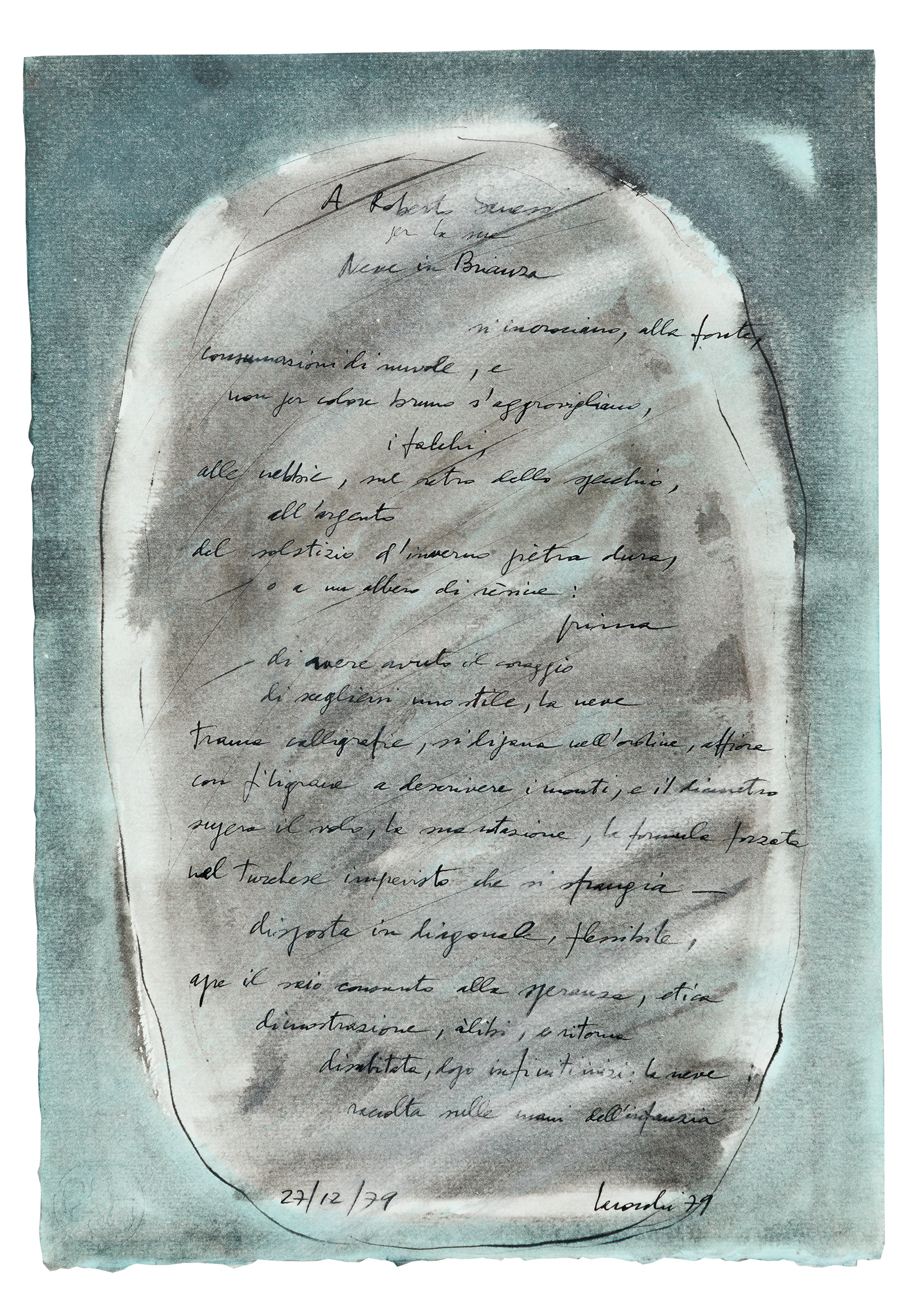 A Roberto Sanesi
per la sua
Neve in Brianza
si incrociano, alla fonte,
consumazioni di nuvole, e
non per colore bruno s'aggrovigliano,
i falchi,
alle nebbie, sul retro dello specchio,
all'argento
del solstizio d'inverno piètra dura,
o a un albero di rèsine:
prima
di avere avuto il coraggio
di scegliersi uno stile, la neve
trama calligrafie, si dipana nell'ordine, affiora
con filigrane a descrivere i monti, e il diametro
supera il volo, la sua mutazione, la formula forzata
nel turchese imprevisto che si sfrangia —
disposta in diagonale, flessibile,
apre il saio consunto alla speranza, etica
dimostrazione, àlibi, e ritorna
disabitata, dopo infiniti inizi: la neve
raccolta sulle mani dell'infanzia
27/12/79 79